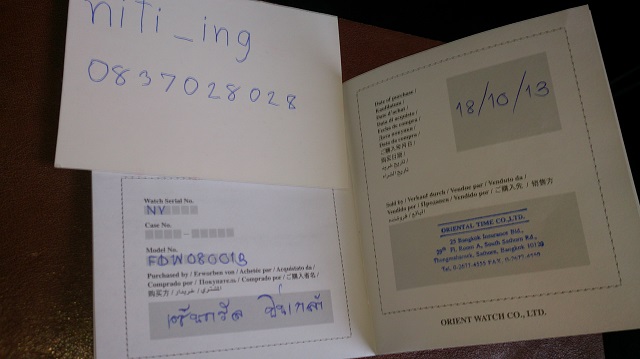 niti_ing
0837028028
Watch Serial No.
NY
Case No.
Model No.
FDW08001B
Purchased by / Erworben von / Acheté par / Acquistato da /
Comprado por / Покупатель / Comprado por / ご購入者名 /
购买方 /
Date of purchase /
Kaufdatum /
Date d'achat /
Data di acquisto /
Fecha de compra /
Дата покупки /
Data da compra /
ご購入年月日 /
购买日期 /
تاريخ الشراء
18/10/13
Sold by / Verkauf durch / Vendus par / Venduto da /
Vendido por / Продавец / Vendido por / ご購入先 / 销售方
ORIENTAL TIME CO.,LTD.
25 Bangkok Insurance Bld.,
Fl. Room A, South Sathorn Rd.,
Sathorn, Bangkok 10120
ORIENT WATCH CO., LTD.